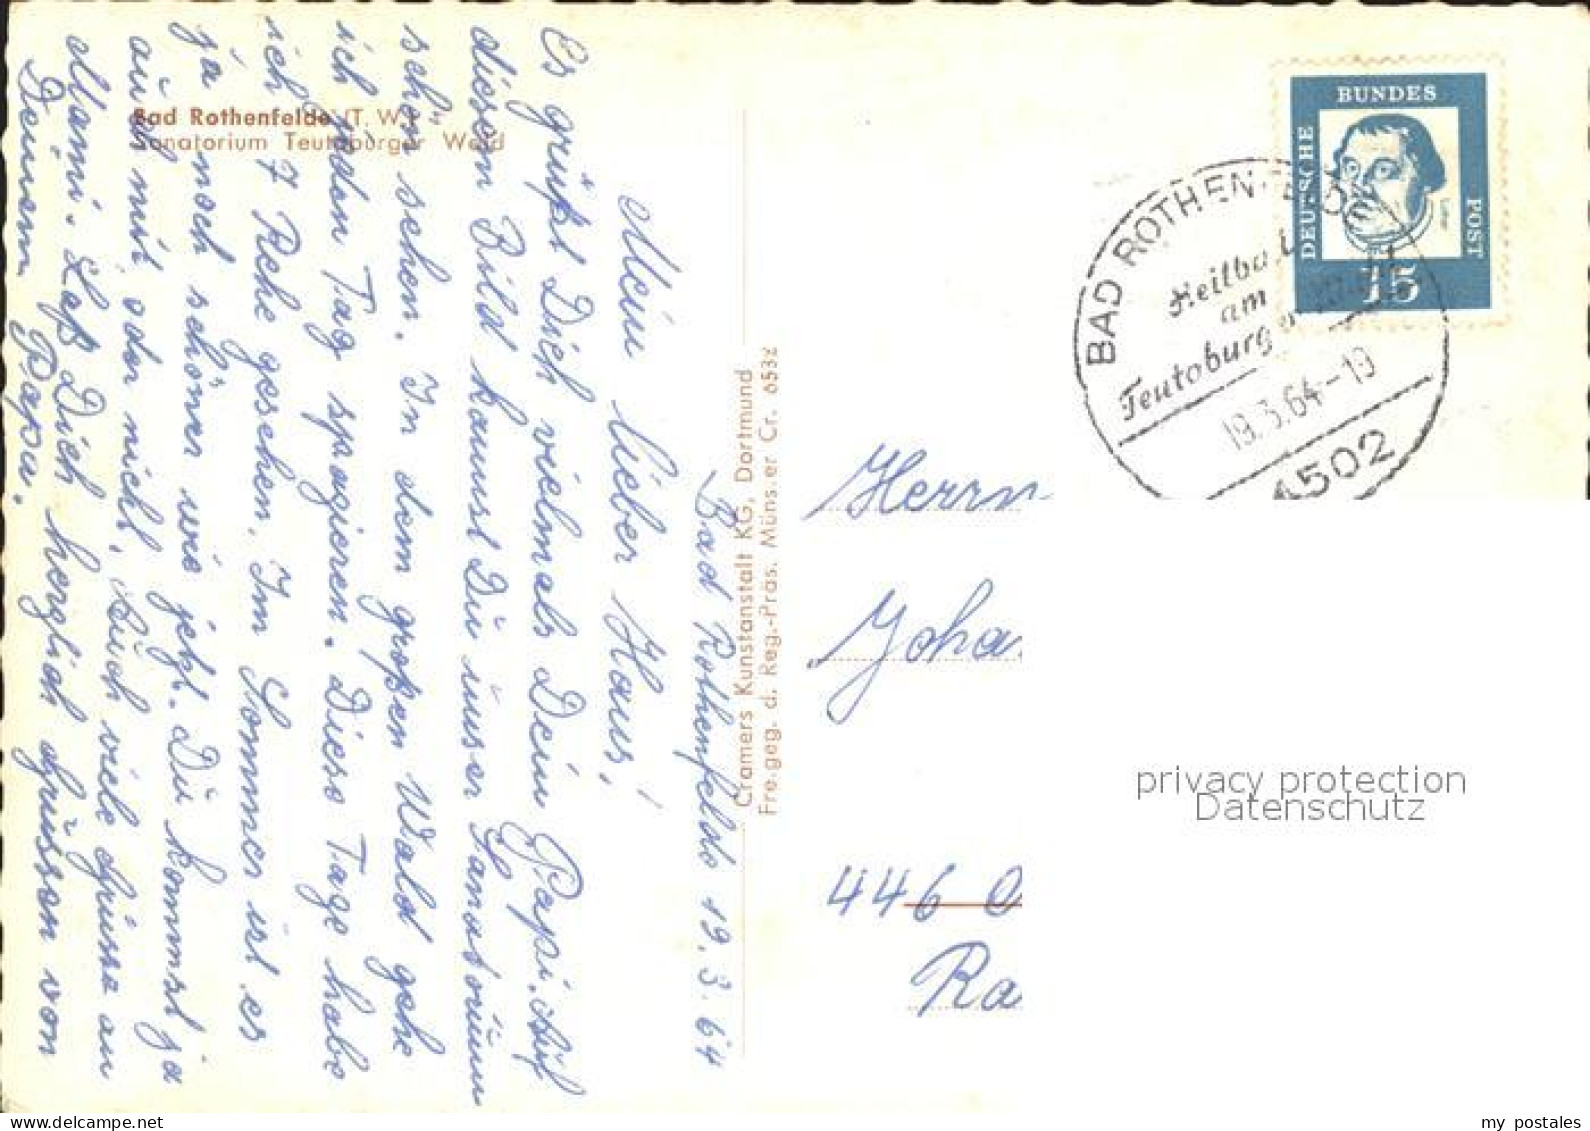 Bad Rothenfelde (T. W.)
Sanatorium Teutoburger Wald
Bad Rothenfelde 19.3.64
Mein lieber Hans!
Es grüßt Dich vielmals Dein Papi. Auf
diesem Bild kannst Du unser Sanatorium
schon sehen. In dem großen Wald gehe
ich jeden Tag spazieren. Diese Tage habe
ich 7 Rehe gesehen. Im Sommer ist es
ja noch schöner wie jetzt. Du kommst ja
auch mit, oder nicht. Auch viele Grüsse an
Mami. Laß Dich herzlich Grüssen von
Deinem Papa.
Cramers Kunstanstalt KG, Dortmund
Freigeg. d. Reg.-Präs. Münster Cr. 6532
DEUTSCHE
BUNDES
POST
15
BAD ROTHENFELDE
Heilbad
am
Teutoburger
19.3.64-19
4502
Herrn
Joha
446
Ra
privacy protection
Datenschutz
my_postales